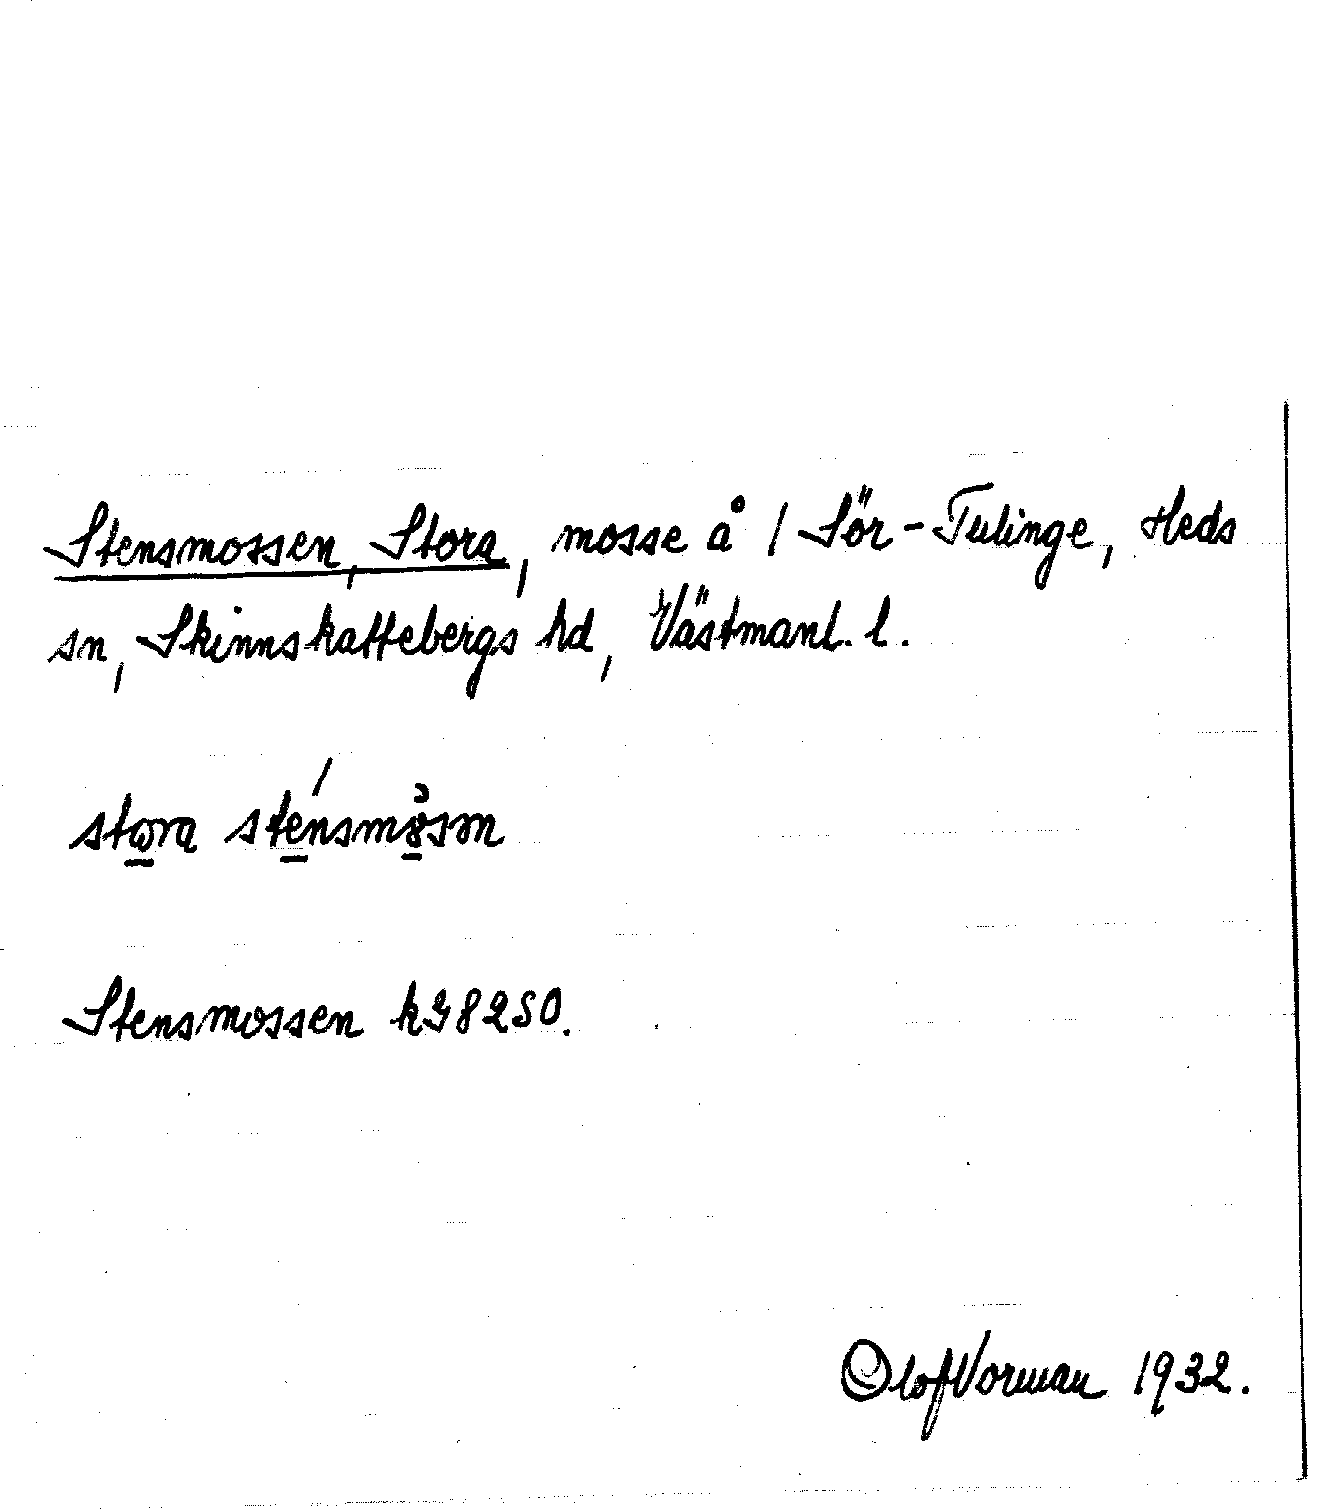 Stensmossen, Stora, mosse å / Sör-Tulinge, Heds
sn, Skinnskattebergs hd, Västmanl. l.
stora sténsmåsm
Stensmossen kG8250.
Olof Vorman 1932.